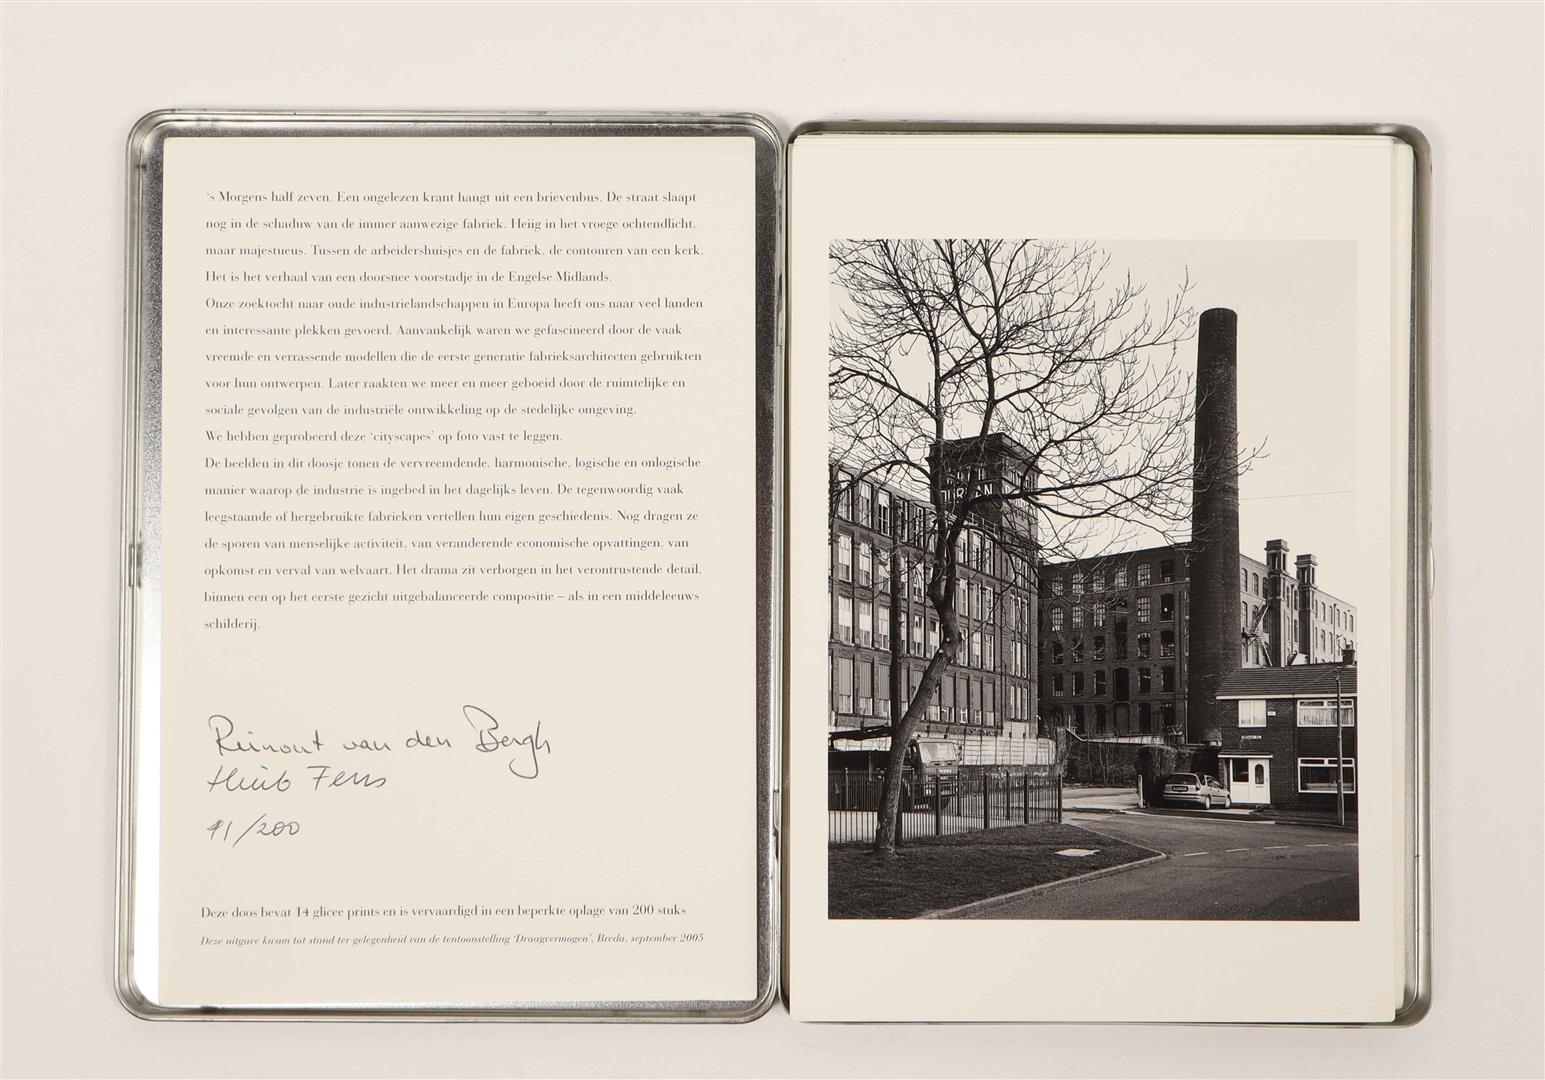 ‘s Morgens half zeven. Een ongelezen krant hangt uit een brievenbus. De straat slaapt
nog in de schaduw van de immer aanwezige fabriek. Heiig in het vroege ochtendlicht,
maar majestueus. Tussen de arbeidershuisjes en de fabriek, de contouren van een kerk.
Het is het verhaal van een doorsnee voorstadje in de Engelse Midlands.
Onze zoektocht naar oude industrielandschappen in Europa heeft ons naar veel landen
en interessante plekken gevoerd. Aanvankelijk waren we gefascineerd door de vaak
vreemde en verrassende modellen die de eerste generatie fabrieksarchitecten gebruikten
voor hun ontwerpen. Later raakten we meer en meer geboeid door de ruimtelijke en
sociale gevolgen van de industriële ontwikkeling op de stedelijke omgeving.
We hebben geprobeerd deze ‘cityscapes’ op foto vast te leggen.
De beelden in dit doosje tonen de vervreemdende, harmonische, logische en onlogische
manier waarop de industrie is ingebed in het dagelijks leven. De tegenwoordig vaak
leegstaande of hergebruikte fabrieken vertellen hun eigen geschiedenis. Nog dragen ze
de sporen van menselijke activiteit, van veranderende economische opvattingen, van
opkomst en verval van welvaart. Het drama zit verborgen in het verontrustende detail,
binnen een op het eerste gezicht uitgebalanceerde compositie – als in een middeleeuws
schilderij.
Reinout van den Bergh
Huib Fens
91/200
Deze doos bevat 14 glicee prints en is vervaardigd in een beperkte oplage van 200 stuks
Deze uitgave kwam tot stand ter gelegenheid van de tentoonstelling ‘Draagvermogen’, Breda, september 2005